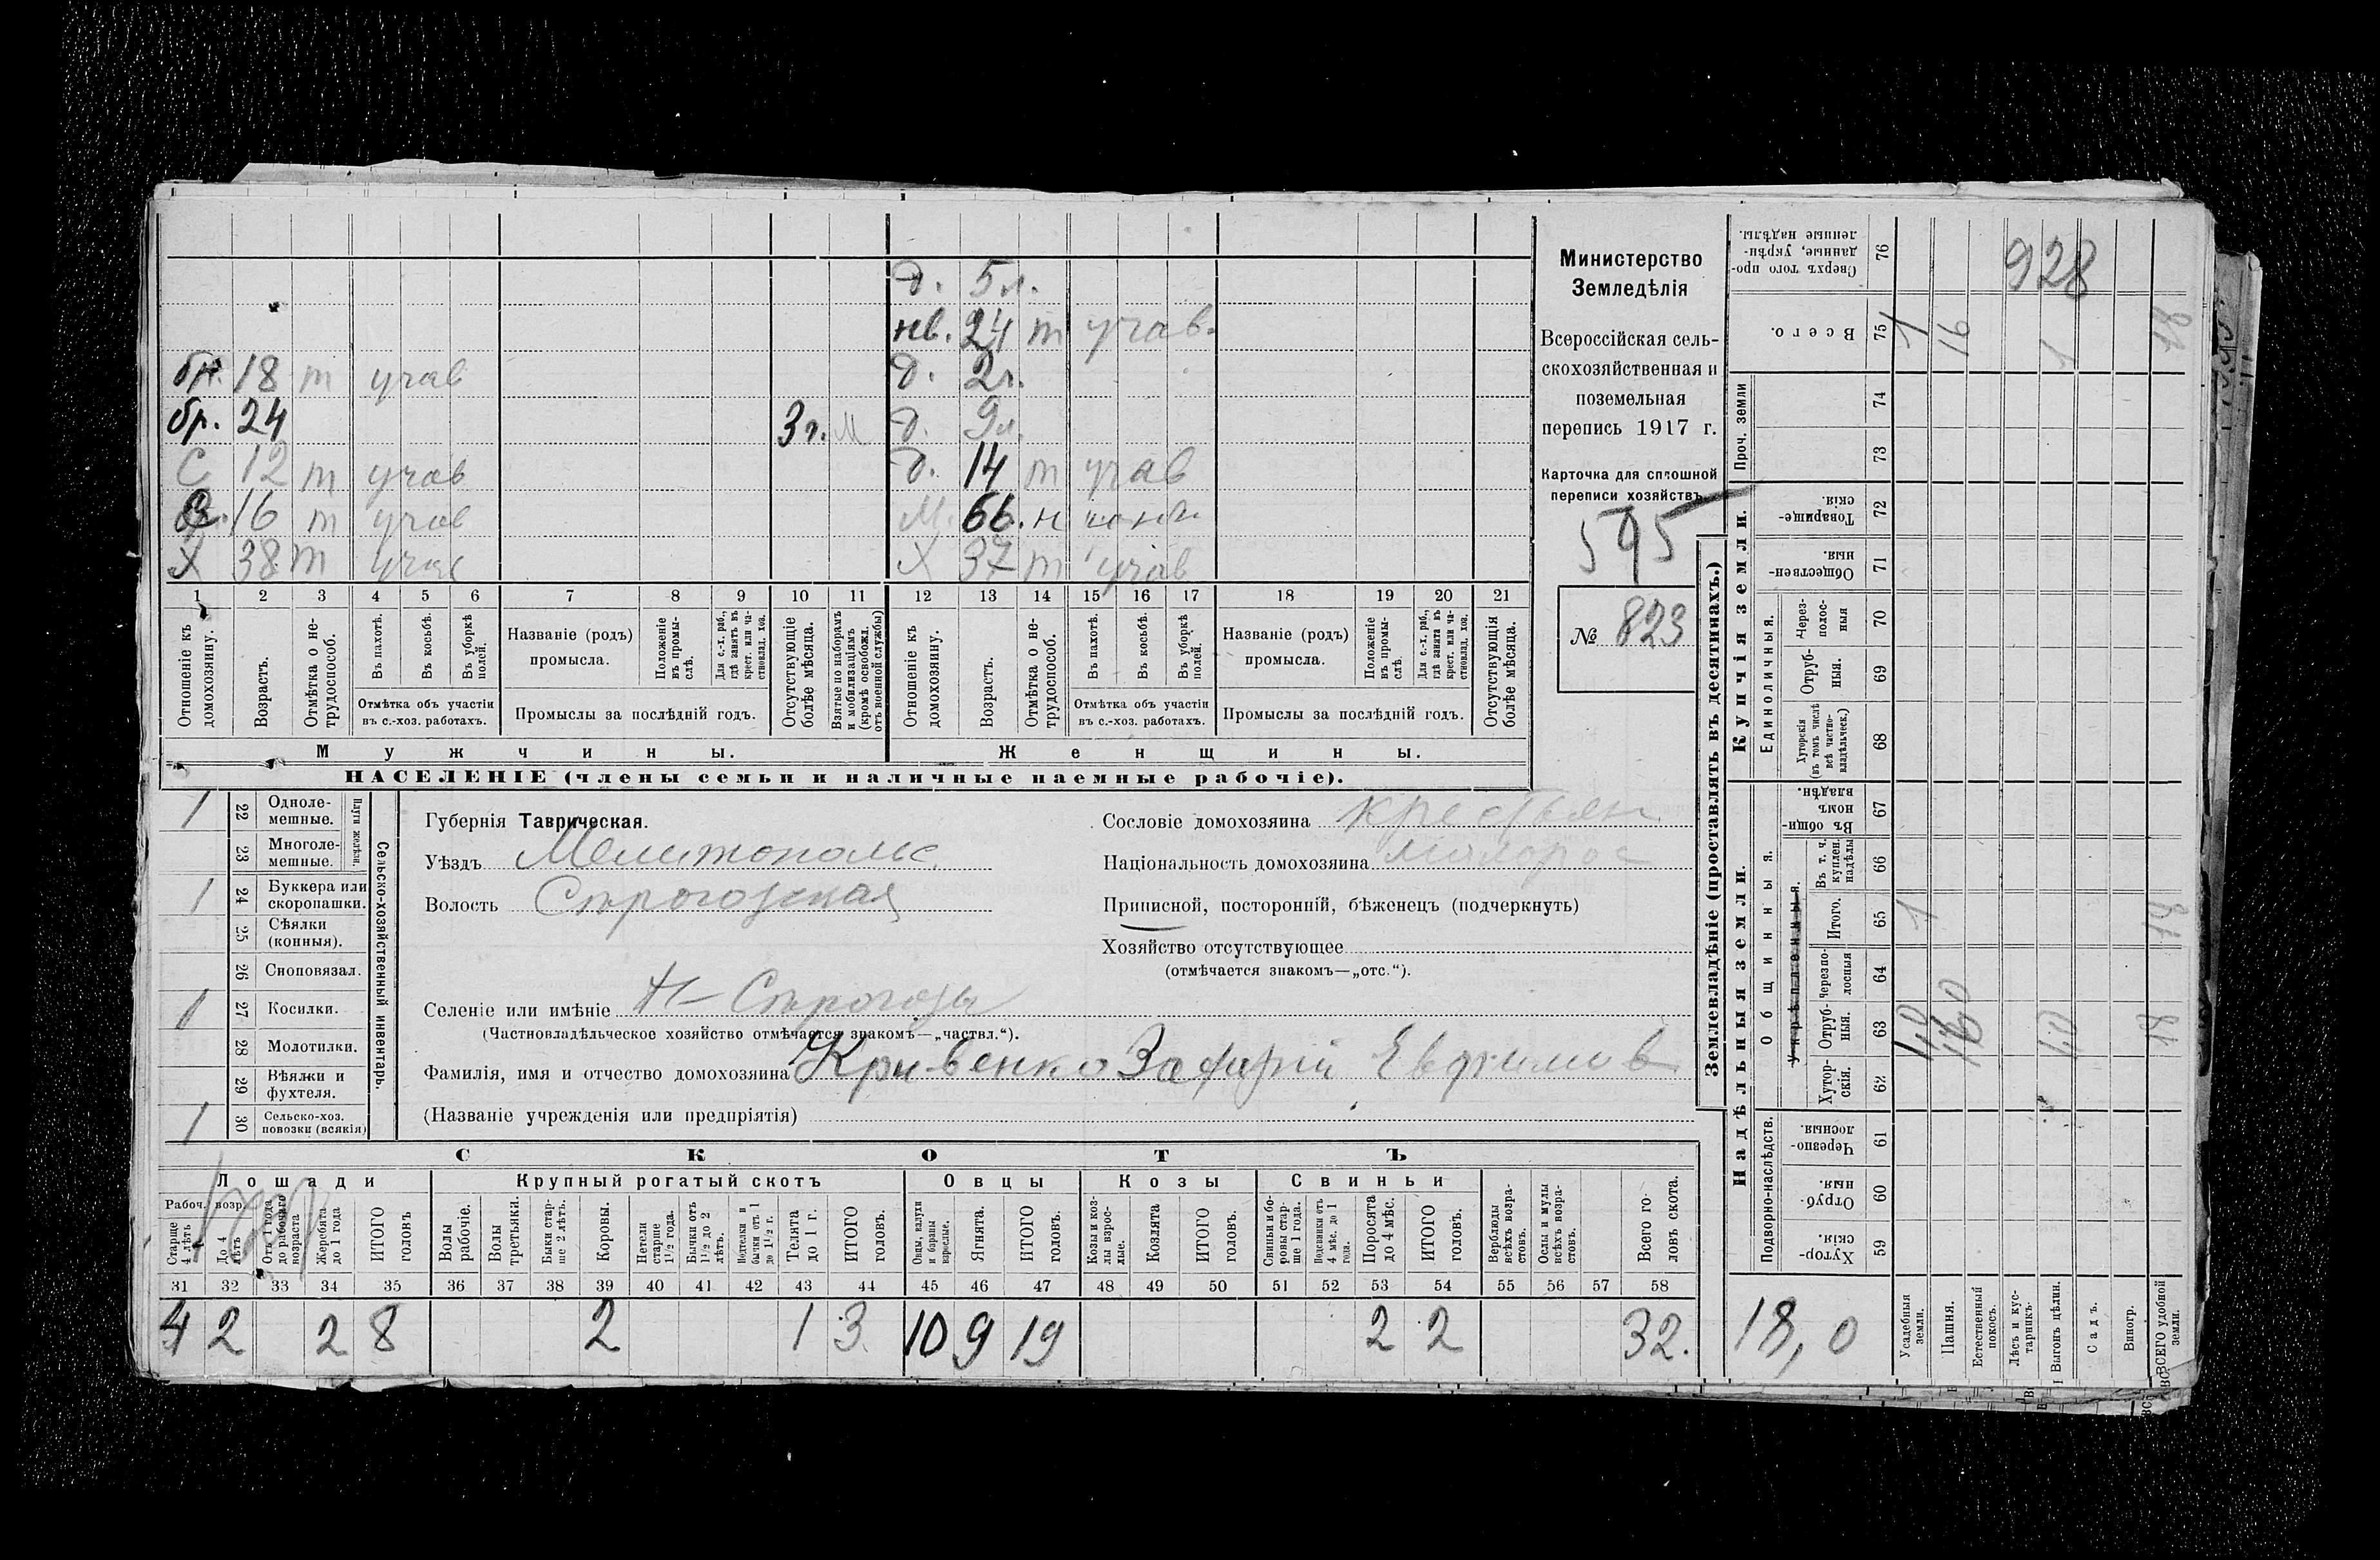 д. 5 л.
нв. 24 т участв.
бр. 18 т учав д. 2 г.
бр. 24 3 г. М д. 9 л.
С 12 т учав д. 14 т учав
С 16 т учав М. 66. н
Х 38 т учас Х 37 т учав
1 2 3 4 5 6 7 8 9 10 11 12 13 14 15 16 17 18 19 20 21
Отношеніе къ домохозяину.
Возрастъ.
Отмѣтка о нетрудоспособ.
Въ пахотѣ.
Въ косьбѣ.
Въ уборкѣ полей.
Отмѣтка объ участіи въ с.-хоз. работахъ.
Названіе (родъ) промысла.
Положеніе въ промыслѣ.
Для с.-х. раб., гдѣ занятъ въ крест. или частновлад. хоз.
Промыслы за послѣдній годъ.
Отсутствующіе болѣе мѣсяца.
Взятые по наборамъ и мобилизаціямъ (кромѣ освобожд. отъ военной службы)
Отношеніе къ домохозяину.
Возрастъ.
Отмѣтка о нетрудоспособ.
Въ пахотѣ.
Въ косьбѣ.
Въ уборкѣ полей.
Отмѣтка объ участіи въ с.-хоз. работахъ.
Названіе (родъ) промысла.
Положеніе въ промыслѣ.
Для с.-х. раб., гдѣ занята въ крест. или частновлад. хоз.
Промыслы за послѣдній годъ.
Отсутствующія болѣе мѣсяца.
Мужчины. Женщины.
НАСЕЛЕНІЕ (члены семьи и наличные наемные рабочіе).
Министерство
Земледѣлія
Всероссійская сель-
скохозяйственная и
поземельная
перепись 1917 г.
Карточка для сплошной
переписи хозяйствъ.
595
№ 823
Сельско-хозяйственный инвентарь.
Плуги желѣзн.
1 22 Одноле-мешные.
23 Многоле-мешные.
1 24 Буккера или скоропашки.
25 Сѣялки (конныя).
26 Сноповязал.
1 27 Косилки.
28 Молотилки.
29 Вѣялки и фухтеля.
1 30 Сельско-хоз. повозки (всякія)
Губернія Таврическая.
Уѣздъ Мелитопольс.
Волость Строгозская
Селеніе или имѣніе Н-Строгозы
(Частновладѣльческое хозяйство отмѣчается знакомъ—„частвл.“).
Фамилія, имя и отчество домохозяина Кривенко Захарій Евфимов
(Названіе учрежденія или предпріятія)
Сословіе домохозяина крестьян
Національность домохозяина малорос
Приписной, посторонній, бѣженецъ (подчеркнуть)
Хозяйство отсутствующее
(отмѣчается знакомъ—„отс.“).
СКОТЪ
Лошади Крупный рогатый скотъ Овцы Козы Свиньи
Рабоч. возр.
Старше 4 лѣтъ
До 4 лѣтъ
Отъ 1 года до рабочаго возраста
Жеребята до 1 года
ИТОГО головъ
Волы рабочіе.
Волы третьяки.
Быки старше 2 лѣтъ.
Коровы.
Нетели старше 1½ года.
Бычки отъ 1½ до 2 лѣтъ.
Подтелки и бычки отъ 1 до 1½ г.
Телята до 1 г.
ИТОГО головъ.
Овцы, валухи и бараны взрослые.
Ягнята.
ИТОГО головъ.
Козы и козлы взрослые.
Козлята
ИТОГО головъ.
Свиньи и боровы старше 1 года.
Подсвинки отъ 4 мѣс. до 1 года.
Поросята до 4 мѣс.
ИТОГО головъ.
Верблюды всѣхъ возрастовъ.
Ослы и мулы всѣхъ возрастовъ.
Всего головъ скота.
31 32 33 34 35 36 37 38 39 40 41 42 43 44 45 46 47 48 49 50 51 52 53 54 55 56 57 58
4 2 2 8 2 1 3 10 9 19 2 2 32.
Землевладѣніе (проставлять въ десятинахъ.)
Надѣльныя земли. Купчія земли. Проч. земли
Подворно-наслѣдств.
Общинныя.
Укрѣпленныя.
Единоличныя.
Сверхъ того проданные, укрѣпленные надѣлы. 76 928
Всего. 75 1 16 1 18
74
73
Товарищескія. 72
Общественныя. 71
Черезполосныя 70
Отрубныя. 69
Хуторскія (въ томъ числѣ всѣ частновладѣльческ.) 68
Въ общинномъ владѣн. 67
Въ т. ч. куплен. надѣлы 66
Итого. 65 1 18
Черезполосныя 64
Отрубныя. 63 1,0 16,0 1,0 18
Хуторскія. 62
Черезполосныя. 61
Отрубныя. 60
Хуторскія. 59
18,0
Усадебныя земли.
Пашня.
Естественный покосъ.
Лѣсъ и кустарникъ.
Выгонъ цѣлин.
Садъ.
Виногр.
ВСЕГО удобной земли.